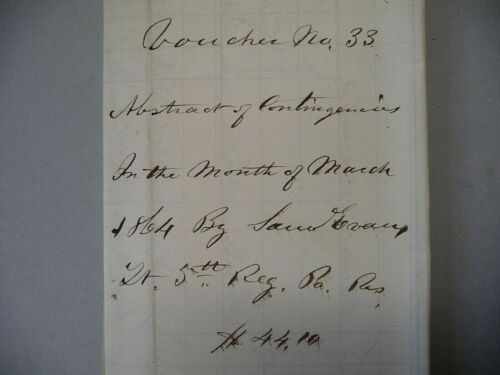 Voucher No. 33
Abstract of Contingencies
In the Month of March
1864 By Saml Evans
Lt. 5th Reg. Pa. Res
$ 44.10